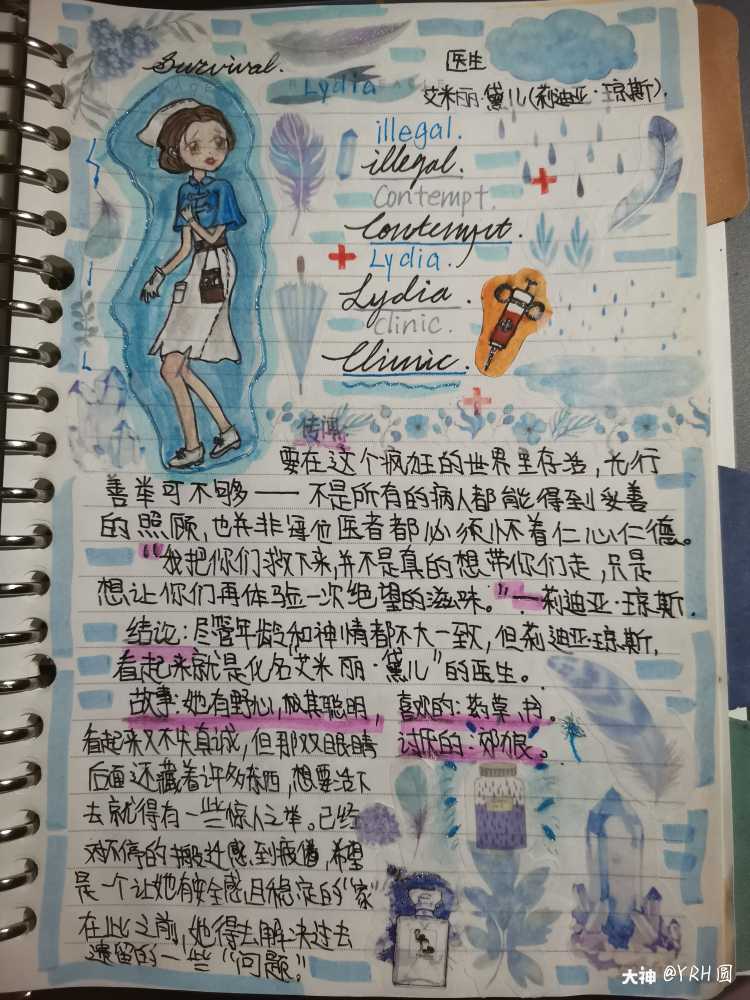 Survival.
医生
Lydia
艾米丽·黛儿(莉迪亚·琼斯).
illegal.
illegal.
Contempt.
Contempt.
Lydia.
Lydia.
Clinic.
Clinic.
传闻:
要在这个疯狂的世界里存活,光行
善举可不够——不是所有的病人都能得到妥善
的照顾,也并非每位医者都必须怀着仁心仁德。
"我把你们救下来,并不是真的想带你们走,只是
想让你们再体验一次绝望的滋味。"—莉迪亚·琼斯.
结论:尽管年龄和神情都不大一致,但莉迪亚琼斯,
看起来就是化名艾米丽·黛儿"的医生。
故事:她有野心,极其聪明,
看起来又不失真诚,但那双眼睛
后面还藏着许多东西,想要活下
去就得有一些惊人之举。已经
对不停的搬迁感到疲倦,希望
是一个让她有安全感且稳定的"家"
在此之前,她得去解决过去
遗留的一些"问题"。
喜欢的:药草,书。
讨厌的:郊狼。
大神 @YRH圆